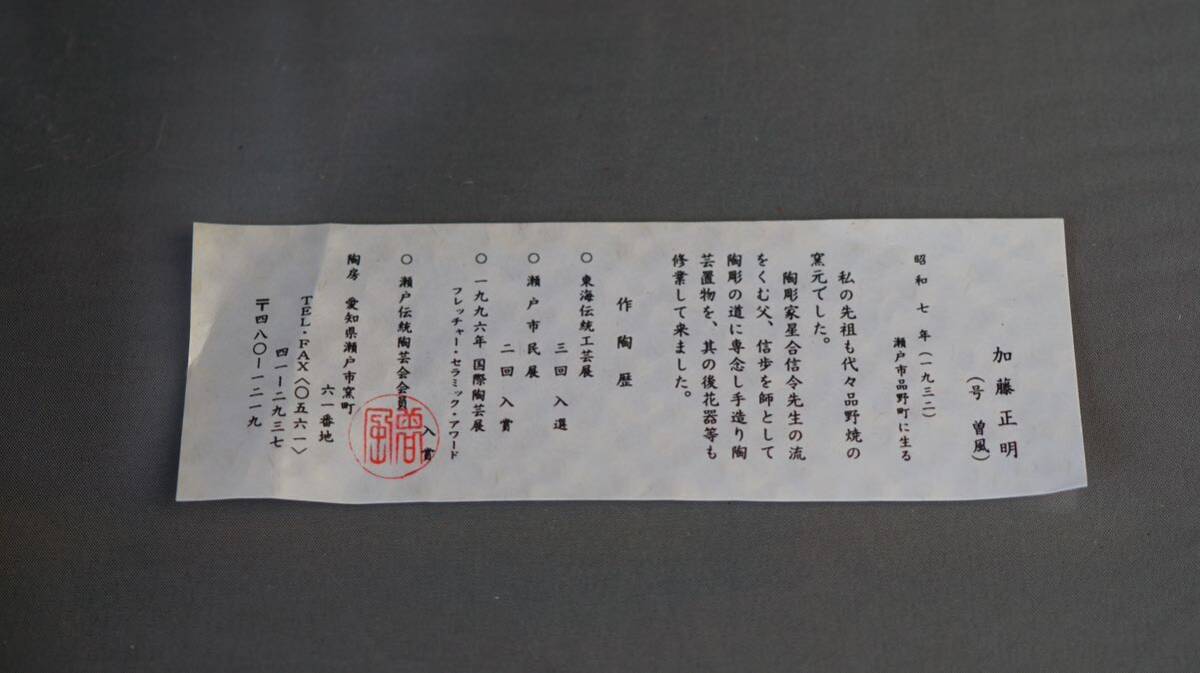 加藤正明
（号 曽風）
昭和七年（一九三二）
瀬戸市品野町に生る
私の先祖も代々品野焼の
窯元でした。
陶彫家星合信令先生の流
をくむ父、信歩を師として
陶彫の道に専念し手造り陶
芸置物を、其の後花器等も
修業して来ました。
作陶歴
○ 東海伝統工芸展
三回入選
○ 瀬戸市民展
二回入賞
○ 一九九六年 国際陶芸展
フレッチャー・セラミック・アワード
入賞
○ 瀬戸伝統陶芸会会員
曽風
陶房 愛知県瀬戸市窯町
六一番地
TEL・FAX〈〇五六一〉
四一ー二九三七
〒四八〇ー一二一九